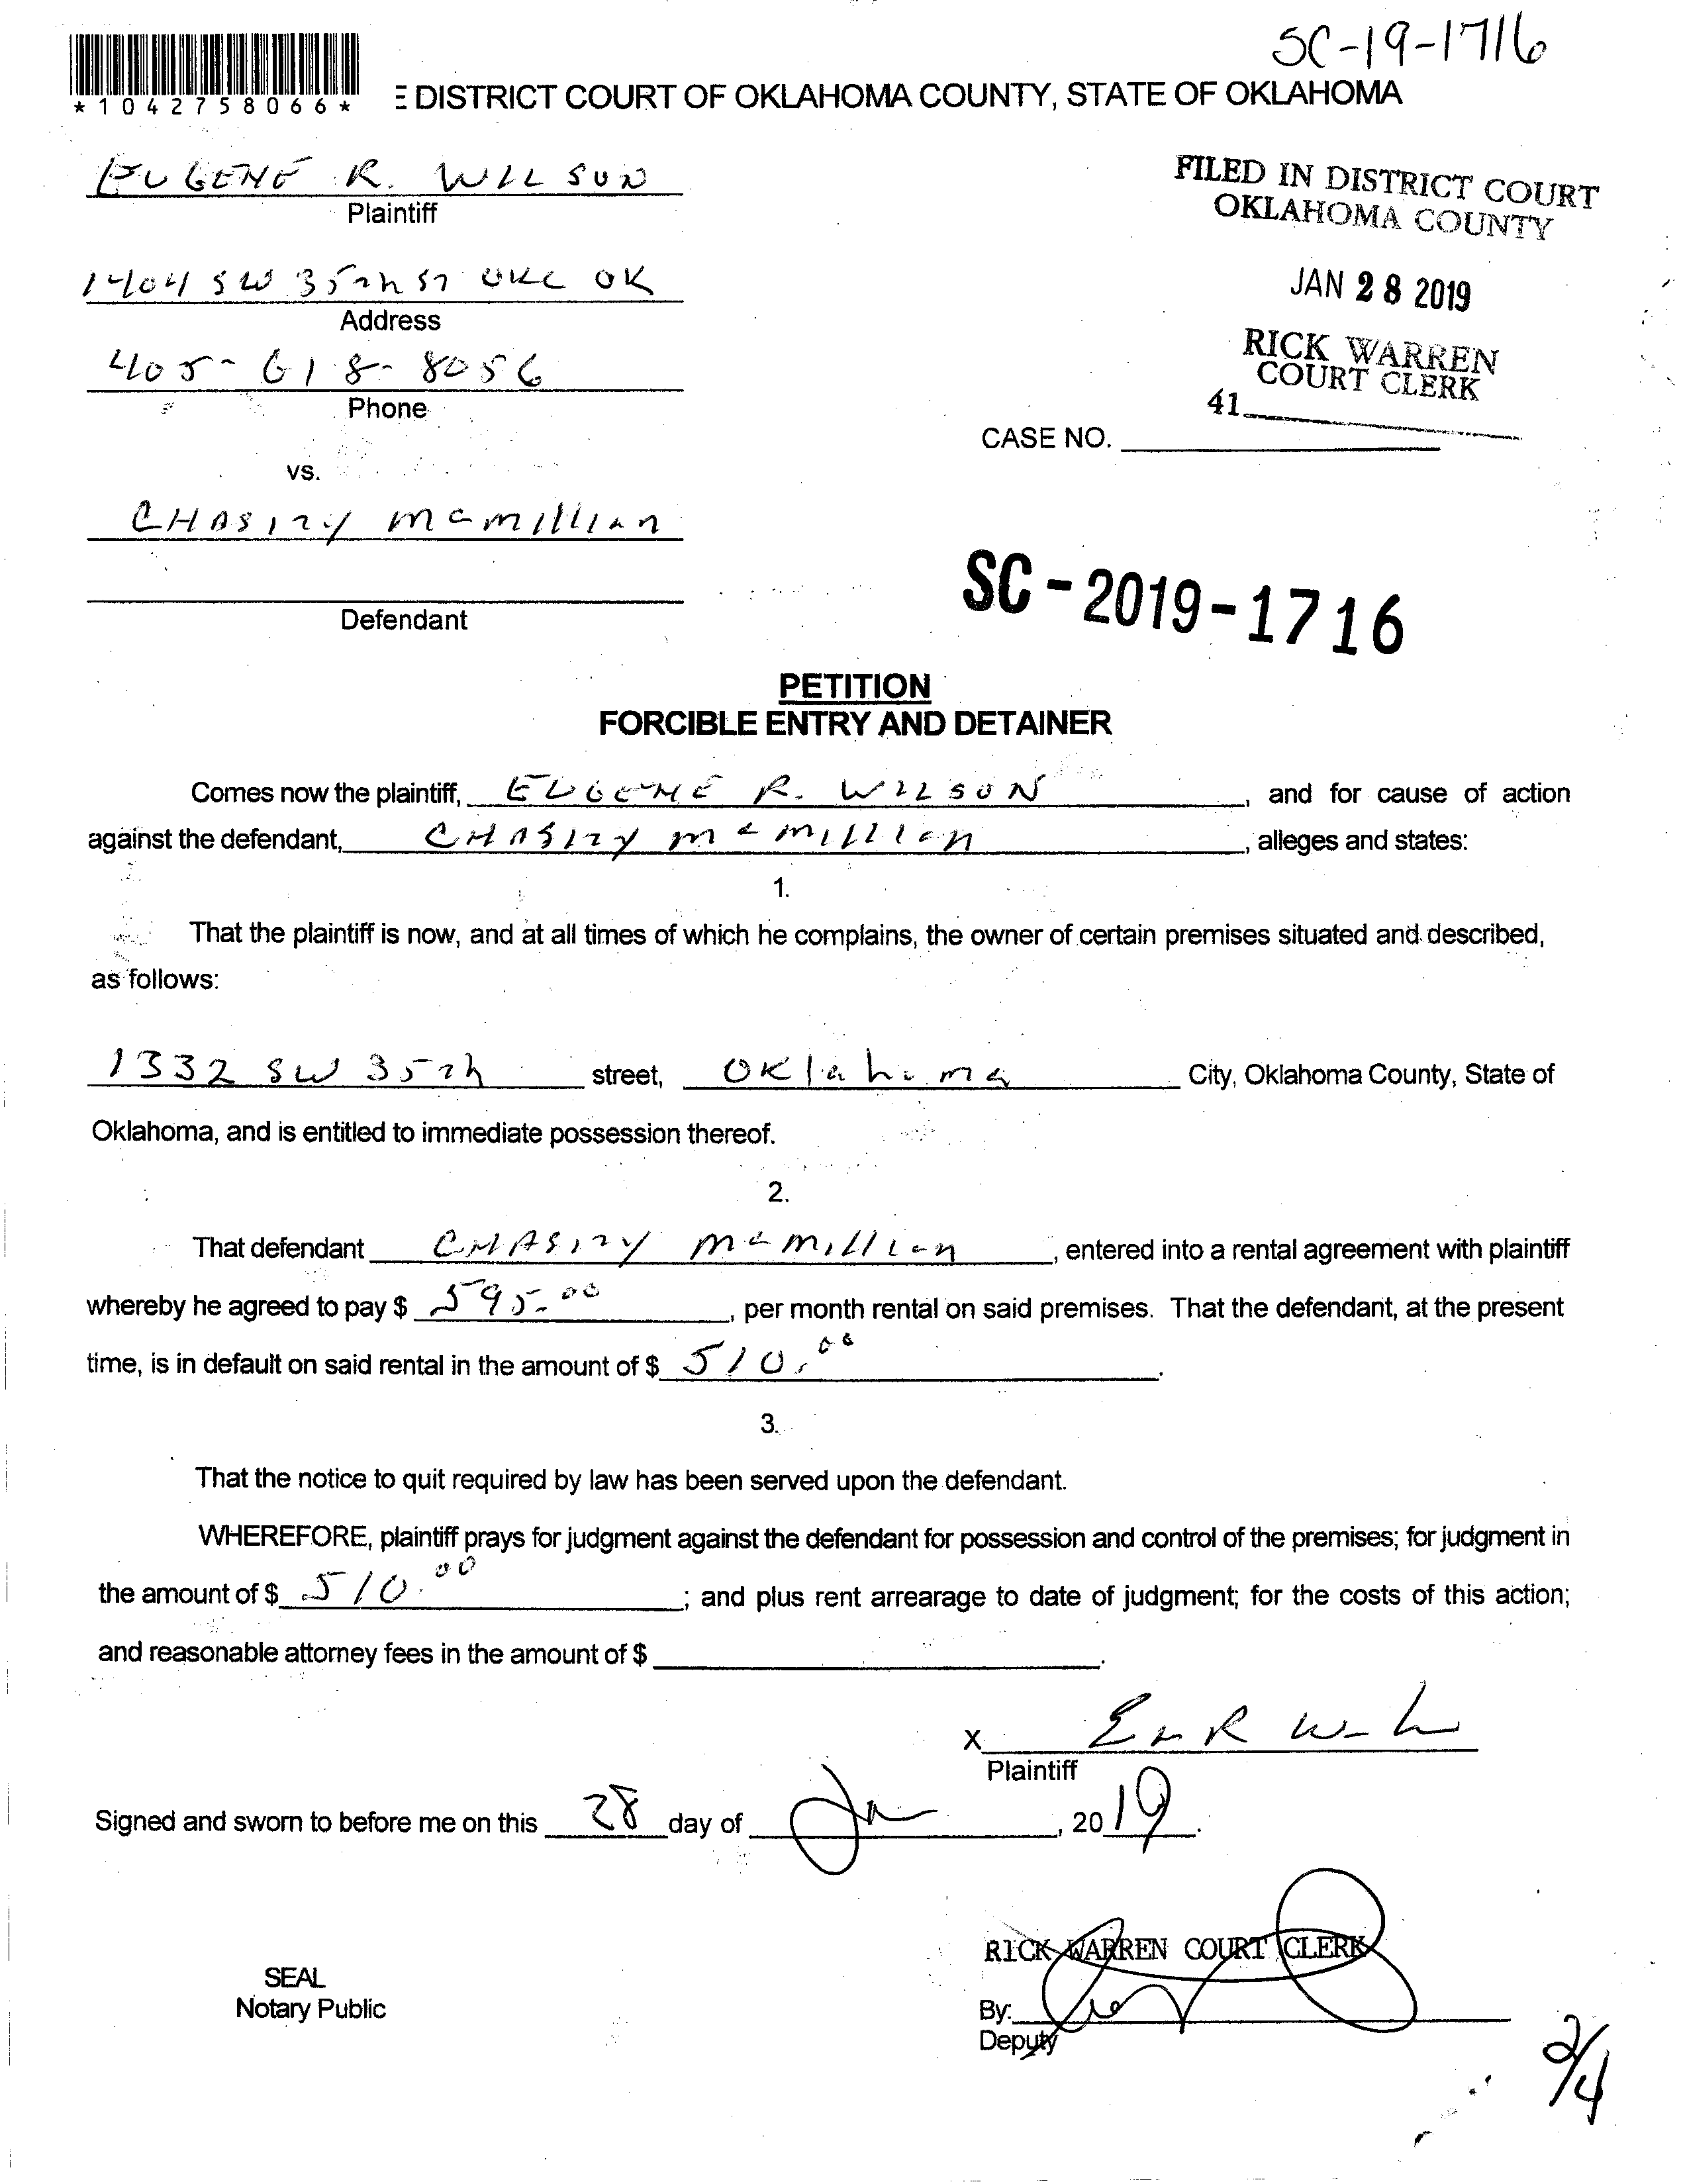 SC-19-1716
*1042758066*
E DISTRICT COURT OF OKLAHOMA COUNTY, STATE OF OKLAHOMA
EUGENE R. WILSON
Plaintiff
FILED IN DISTRICT COURT
OKLAHOMA COUNTY
1404 SW 35th ST OKC OK
Address
JAN 28 2019
405-618-8056
Phone
RICK WARREN
COURT CLERK
41
CASE NO.
vs.
CHASITY McMillian
Defendant
SC-2019-1716
PETITION
FORCIBLE ENTRY AND DETAINER
Comes now the plaintiff, EUGENE R. WILSON, and for cause of action
against the defendant, CHASITY McMillian, alleges and states:
1.
That the plaintiff is now, and at all times of which he complains, the owner of certain premises situated and described,
as follows:
1332 SW 35th street, Oklahoma City, Oklahoma County, State of
Oklahoma, and is entitled to immediate possession thereof.
2.
That defendant CHASITY McMillian, entered into a rental agreement with plaintiff
whereby he agreed to pay $ 595.00, per month rental on said premises. That the defendant, at the present
time, is in default on said rental in the amount of $ 510.00.
3.
That the notice to quit required by law has been served upon the defendant.
WHEREFORE, plaintiff prays for judgment against the defendant for possession and control of the premises; for judgment in
the amount of $ 510.00; and plus rent arrearage to date of judgment; for the costs of this action;
and reasonable attorney fees in the amount of $ .
X
Plaintiff
Signed and sworn to before me on this 28 day of Jan, 2019.
RICK WARREN COURT CLERK
SEAL
Notary Public
By:
Deputy
2/4